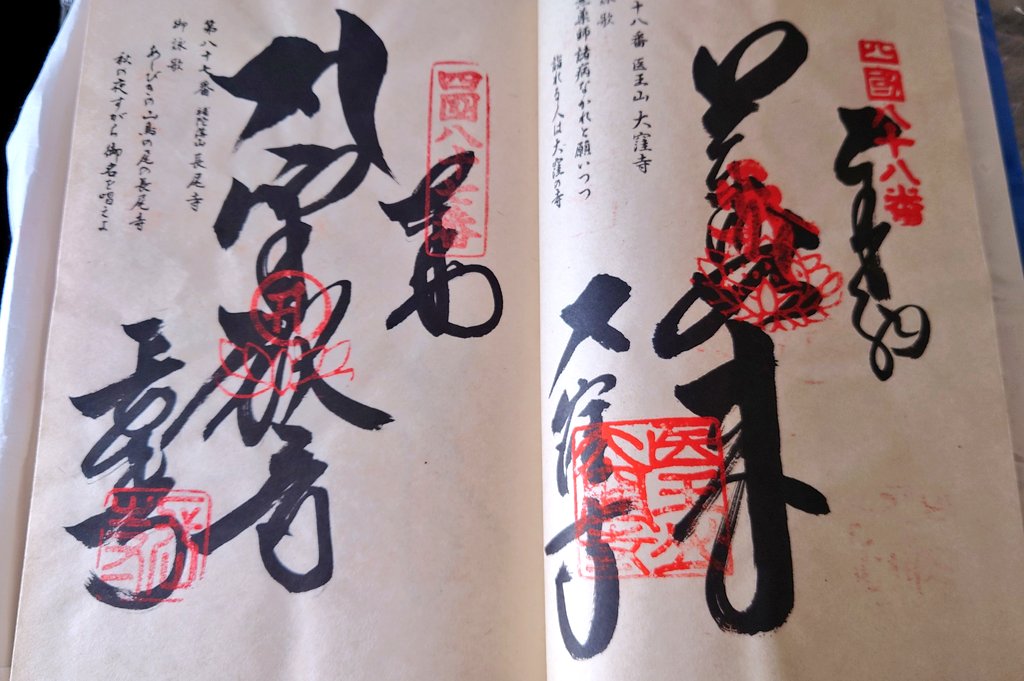 四國八十八番
奉納
大窪寺
十八番 医王山 大窪寺
詠歌
薬師諸病なかれと願いつつ
詣れる人は大窪の寺
四國八十七番
奉納
聖観音
長尾寺
第八十七番 補陀落山 長尾寺
御詠歌
あしびきの山鳥の尾の長尾寺
秋の夜すがら御名を唱えよ